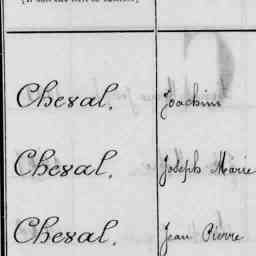 Cheval, Joachim
Cheval, Joseph Marie
Cheval, Jean Pierre